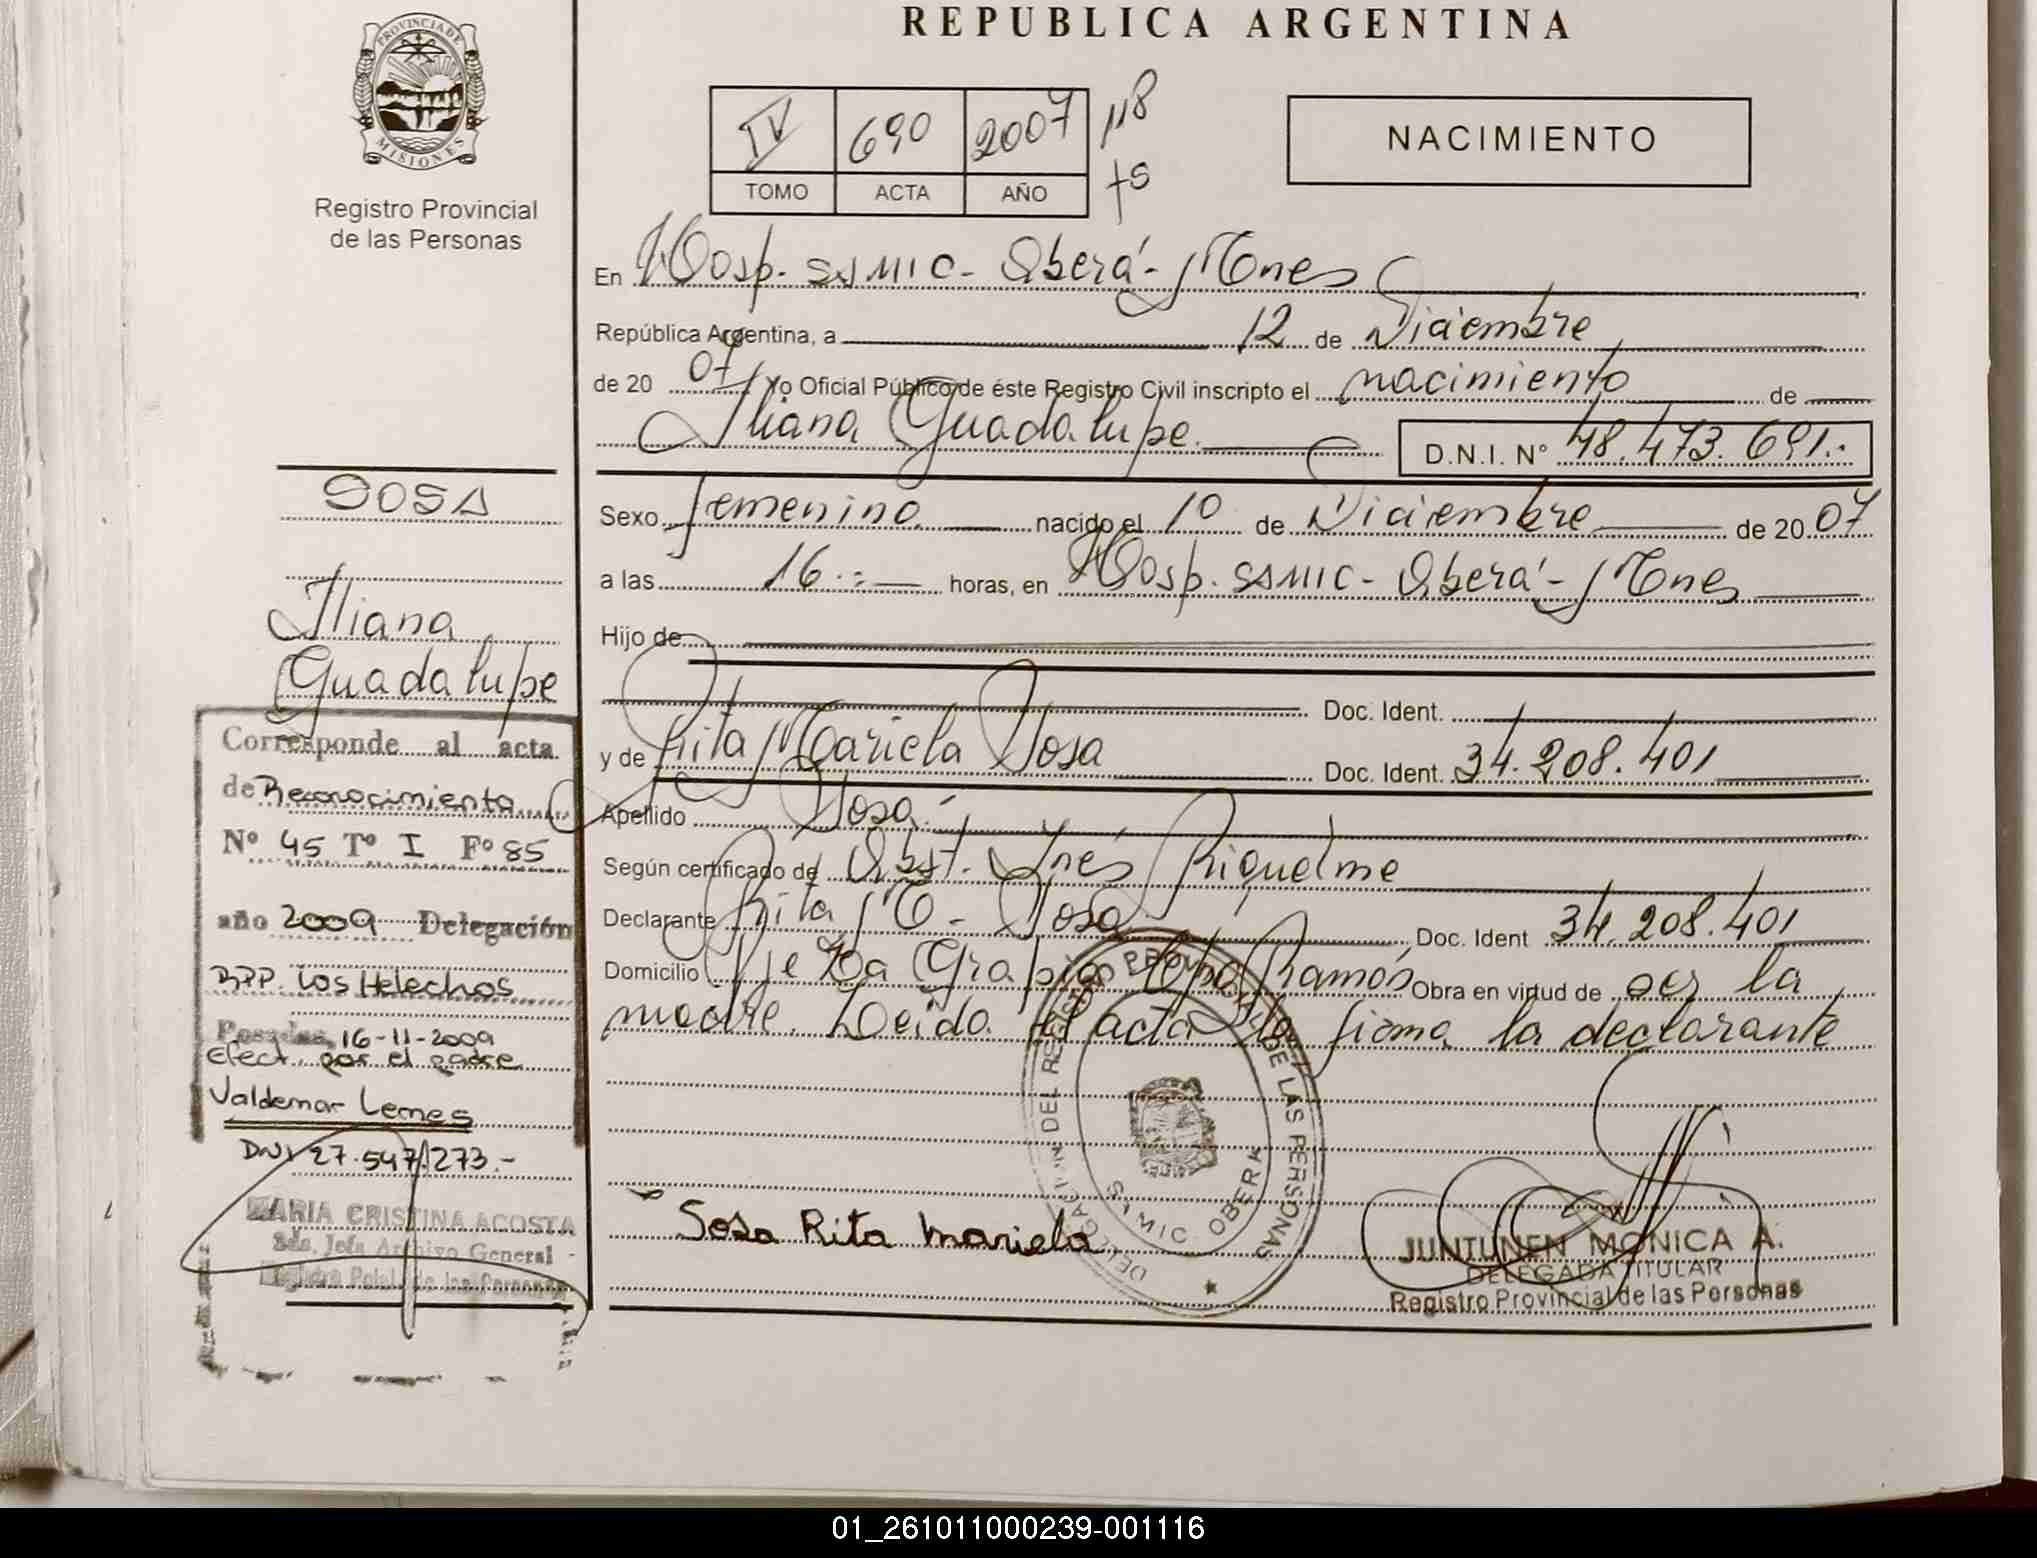 REPUBLICA ARGENTINA
PROVINCIA DE MISIONES
Registro Provincial
de las Personas
IV 690 2007 118
TOMO ACTA AÑO fs
NACIMIENTO
En Hosp. SSMIC - Oberá - Mnes
República Argentina, a 12 de Diciembre
de 2007 Yo Oficial Público de éste Registro Civil inscripto el nacimiento de
Iliana Guadalupe. D.N.I. Nº 48.473.691.
Sexo femenino nacido el 10 de Diciembre de 2007
a las 16.: horas, en Hosp. SSMIC - Oberá - Mnes
Hijo de
Doc. Ident.
y de Rita Mariela Sosa Doc. Ident. 34.208.401
Apellido Sosa.
Según certificado de Obst. Inés Riquelme
Declarante Rita M. Sosa Doc. Ident 34.208.401
Domicilio Ramón Obra en virtud de ser la
madre. Leida el acta la firma la declarante
Sosa Rita Mariela
DELEGACION DEL REGISTRO PROVINCIAL DE LAS PERSONAS
OBERA
JUNTUNEN MONICA A.
DELEGADA TITULAR
Registro Provincial de las Personas
SOSA
Iliana
Guadalupe
Corresponde al acta
de Reconocimiento
Nº 45 Tº I Fº 85
año 2009 Delegación
RPP. Los Helechos
Posadas, 16-11-2009
Efect. por el padre
Valdemar Lemes
DNI 27.547.273.-
MARIA CRISTINA ACOSTA
Sda. Jefa Archivo General
Registro Pcial. de las Personas
01_261011000239-001116